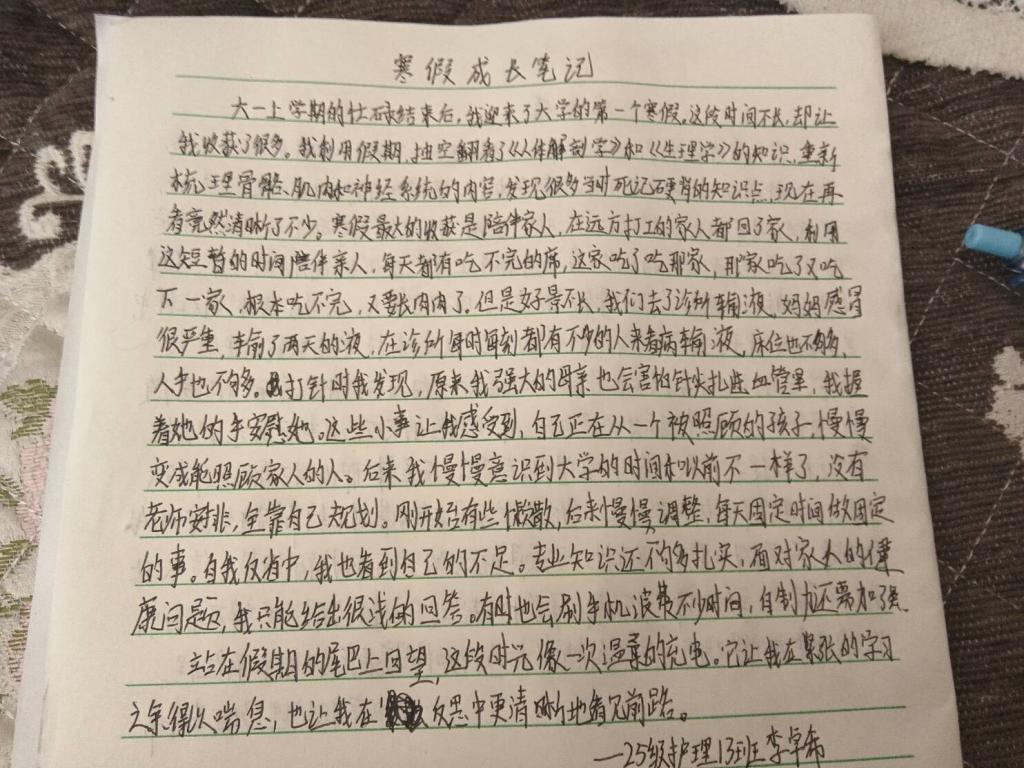 寒假成长笔记
大一上学期的忙碌结束后,我迎来了大学的第一个寒假。这段时间不长,却让
我收获了很多。我利用假期,抽空翻看了《人体解剖学》和《生理学》的知识,重新
梳理骨骼、肌肉和神经系统的内容,发现很多当时死记硬背的知识点,现在再
看竟然清晰了不少。寒假最大的收获是陪伴家人,在远方打工的家人都回了家,利用
这短暂的时间陪伴亲人,每天都有吃不完的席,这家吃了吃那家,那家吃了又吃
下一家,根本吃不完,又要长肉肉了。但是好景不长,我们去了诊所输液,妈妈感冒
很严重,输了两天的液,在诊所每时每刻都有不少的人来看病输液,床位也不够多,
人手也不够多。打针时我发现,原来我强大的母亲也会害怕针头扎进血管里,我握
着她的手安慰她。这些小事让我感受到,自己正在从一个被照顾的孩子,慢慢
变成能照顾家人的人。后来我慢慢意识到大学的时间和以前不一样了,没有
老师安排,全靠自己规划。刚开始有些懒散,后来慢慢调整,每天固定时间做固定
的事。自我反省中,我也看到自己的不足。专业知识还不够多扎实,面对家人的健
康问题,我只能给出很浅的回答。有时也会刷手机浪费不少时间,自制力还需加强
站在假期的尾巴上回望,这段时光像一次温柔的充电。它让我在紧张的学习
之余得以喘息,也让我在反思中更清晰地看见前路。
—25级护理13班 李卓希